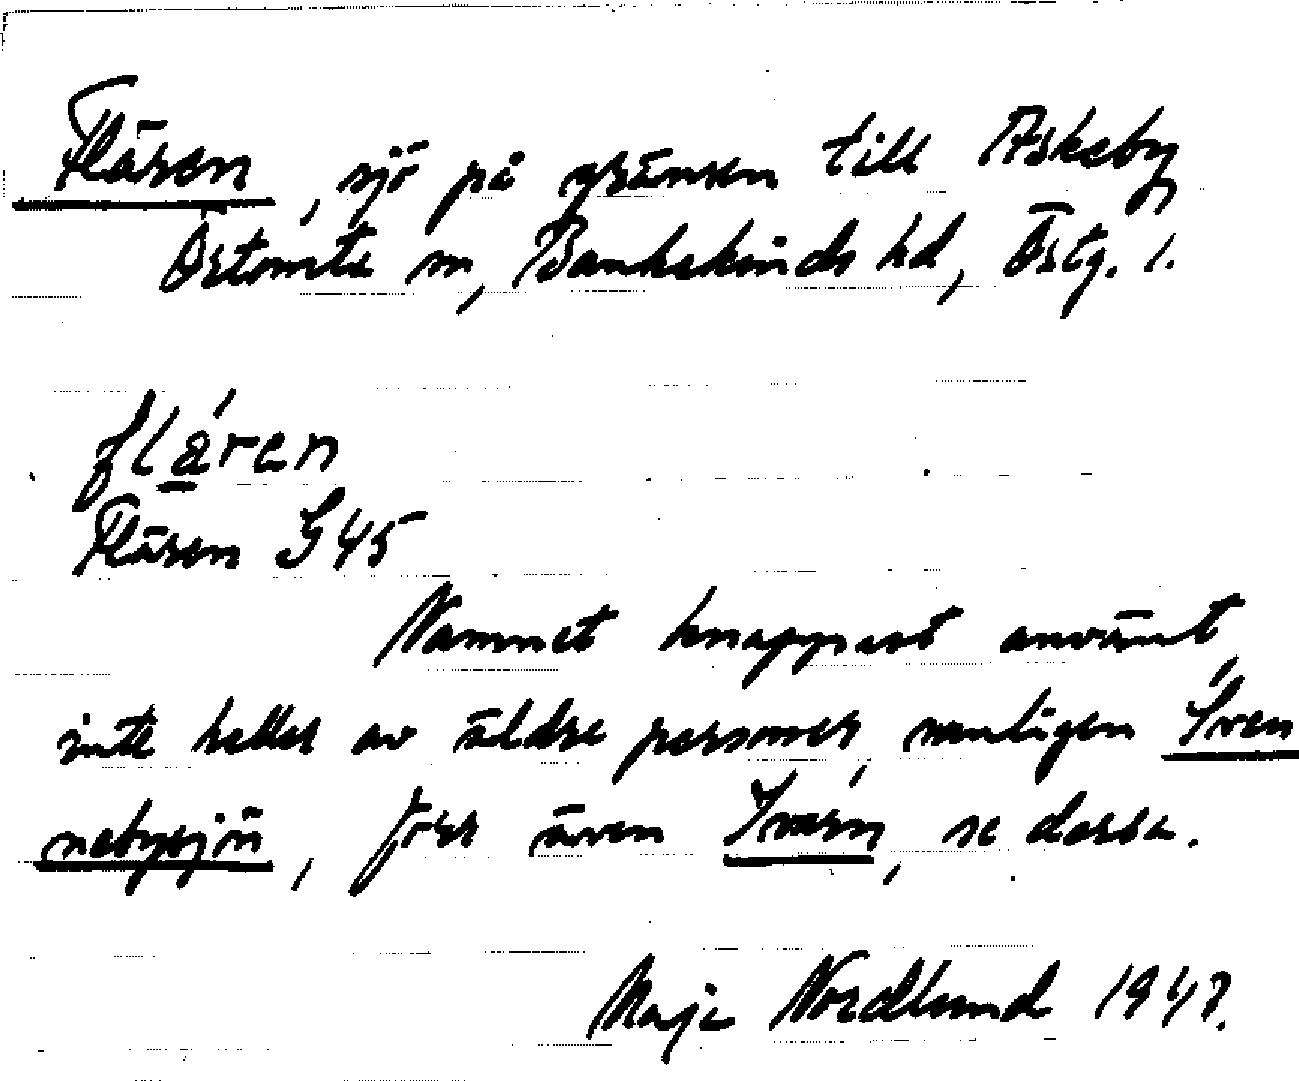 Flären, sjö på gränsen till Askeby
Östomta sn, Bankekinds hd, Östg. l.
flä́ren
Flären G 45
Namnet knappast använt,
inte heller av äldre personer, vanligen Sven
nebysjön, förr även Svärn, se dessa.
Maja Nordlund 1947.